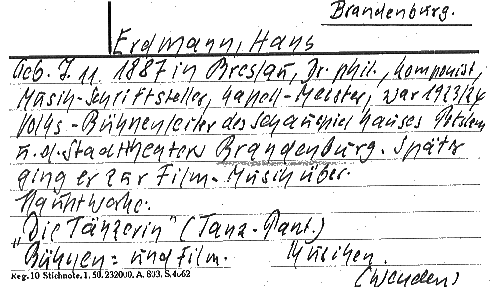 Brandenburg.
Erdmann, Hans
Geb. 7. 11. 1887 in Breslau, Dr. phil., Komponist,
Musik-Schriftsteller, Kapell-Meister, war 1923/24
Volks-Bühnenleiter des Schauspielhauses Potsdam
u. d. Stadttheaters Brandenburg. Später
ging er zur Film-Musik über.
Hauptwerke:
"Die Tänzerin" (Tanz-Pant.)
Bühnen= und Film. Musiken.
(Wenden)
Reg. 10 Stichnote. 1, 50. 232000. A. 803. S. 4662